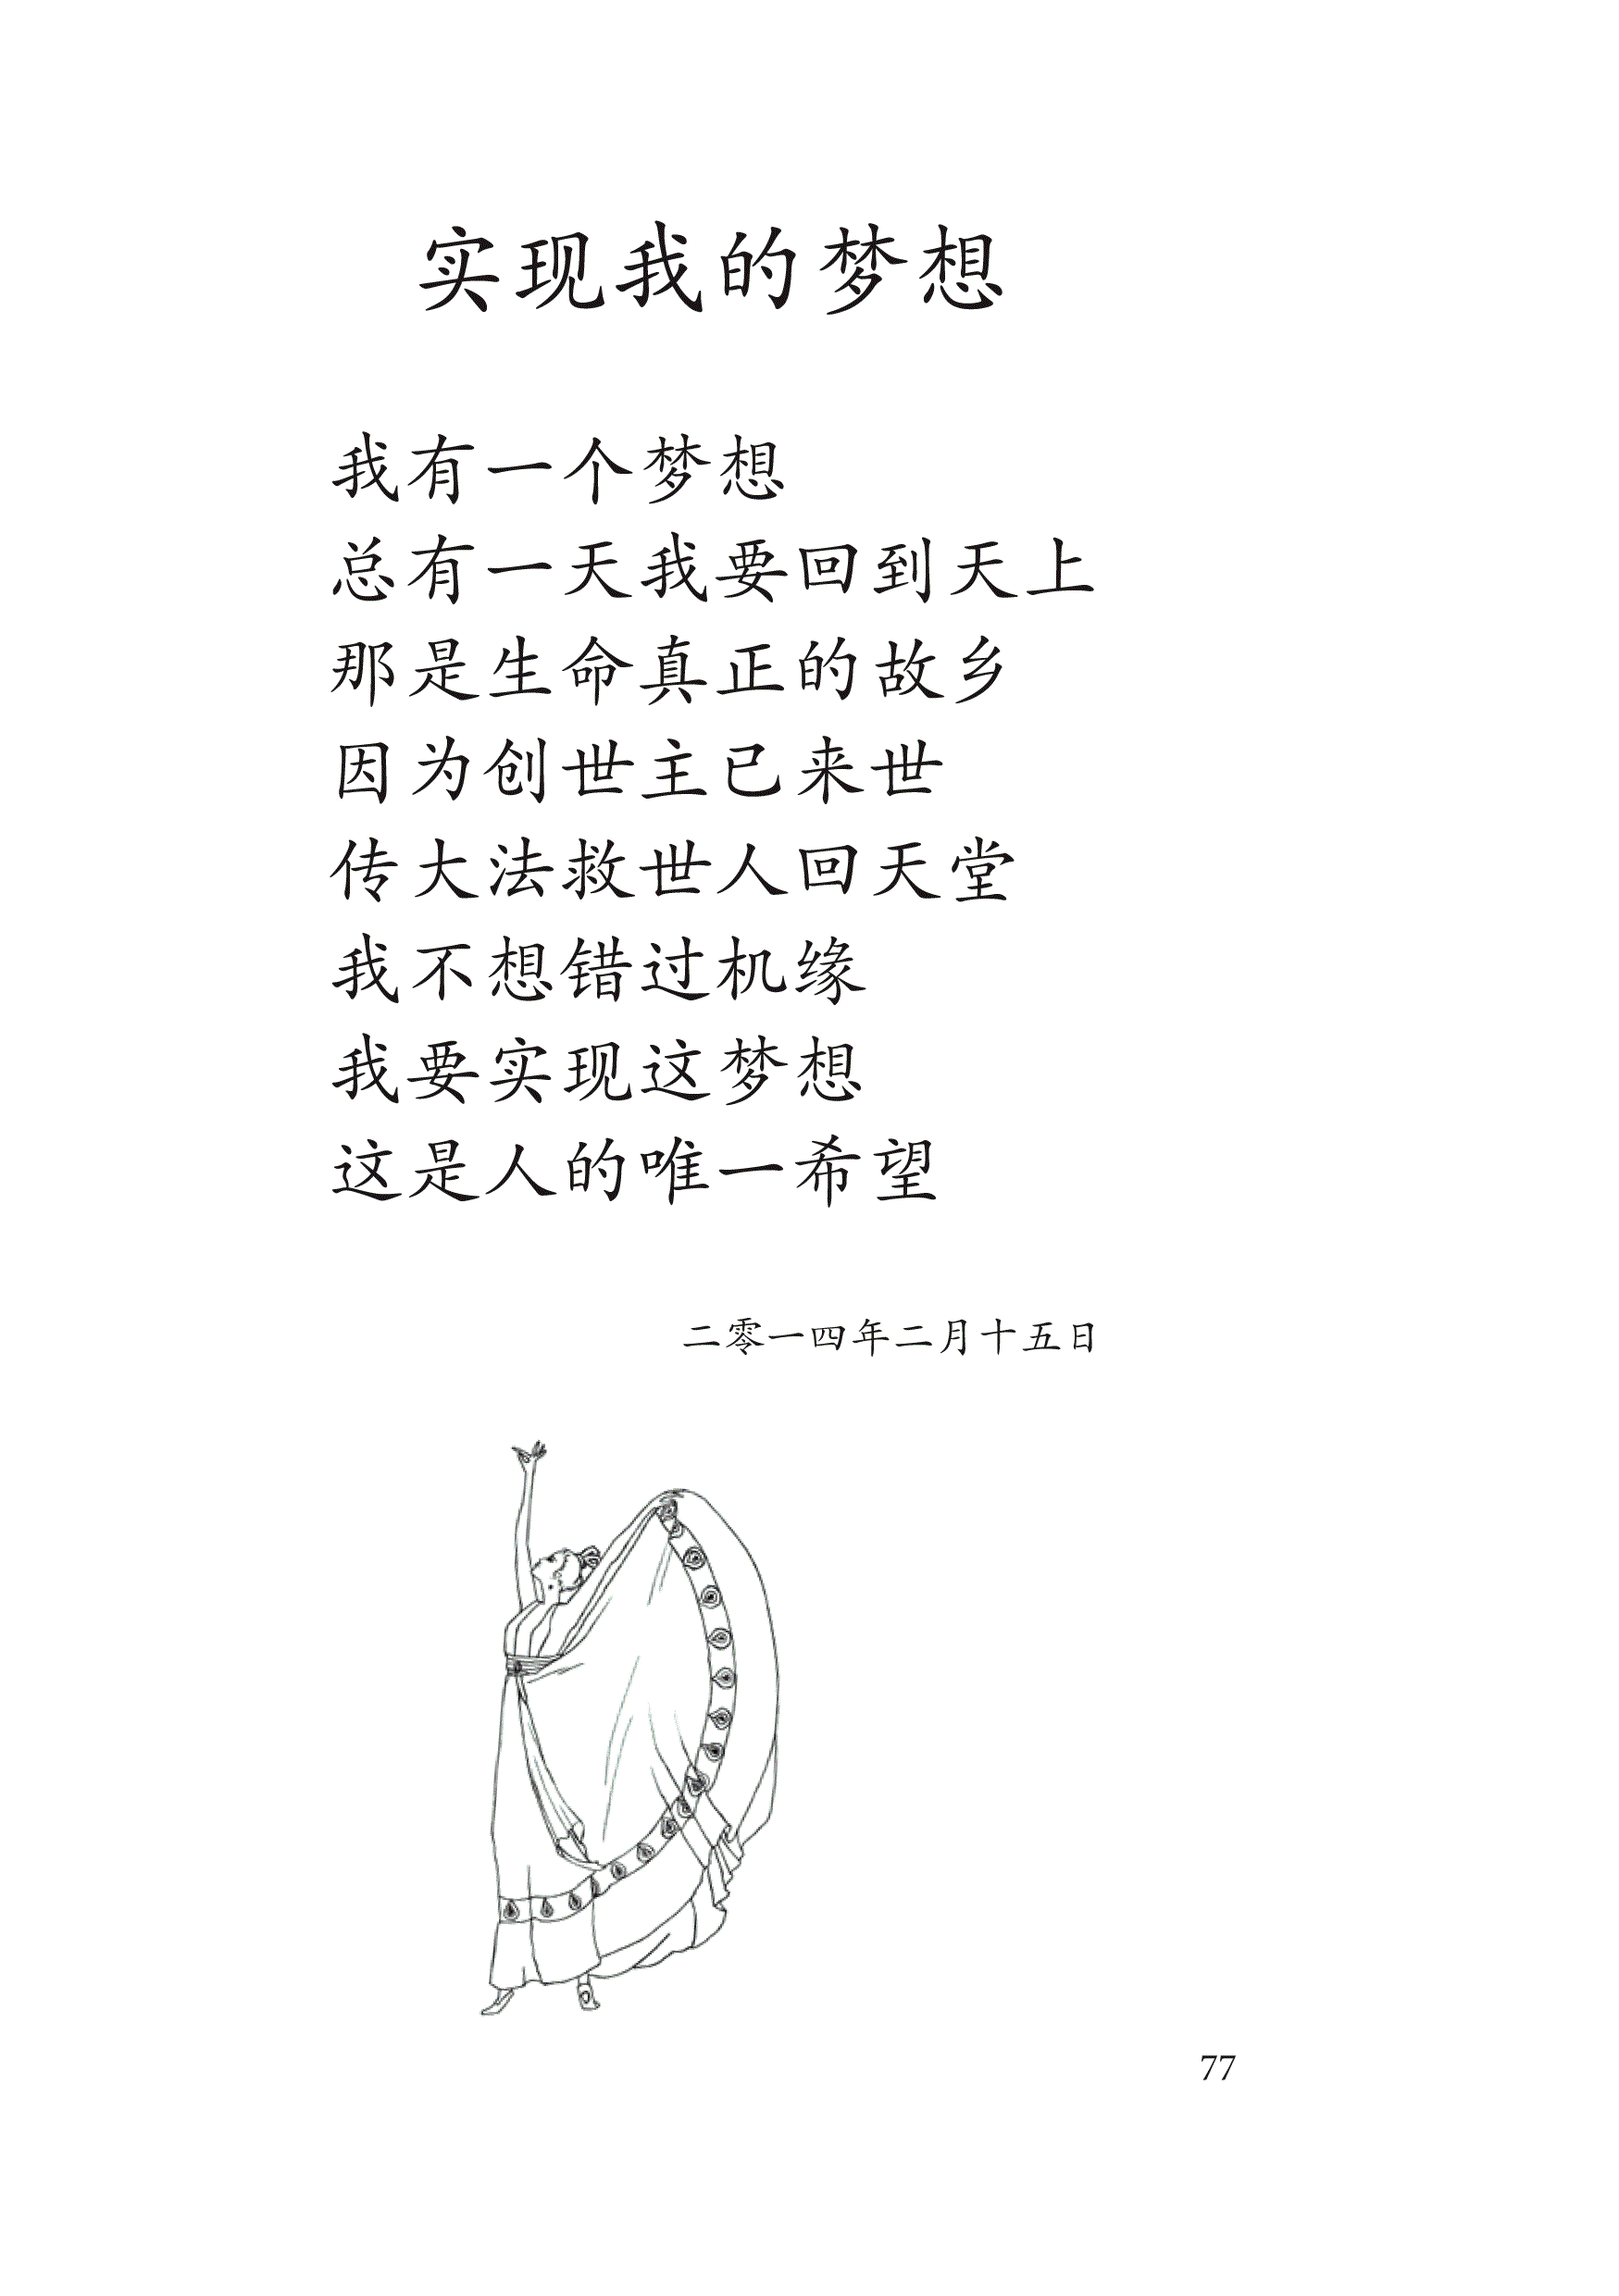 实现我的梦想
我有一个梦想
总有一天我要回到天上
那是生命真正的故乡
因为创世主已来世
传大法救世人回天堂
我不想错过机缘
我要实现这梦想
这是人的唯一希望
二零一四年二月十五日
77